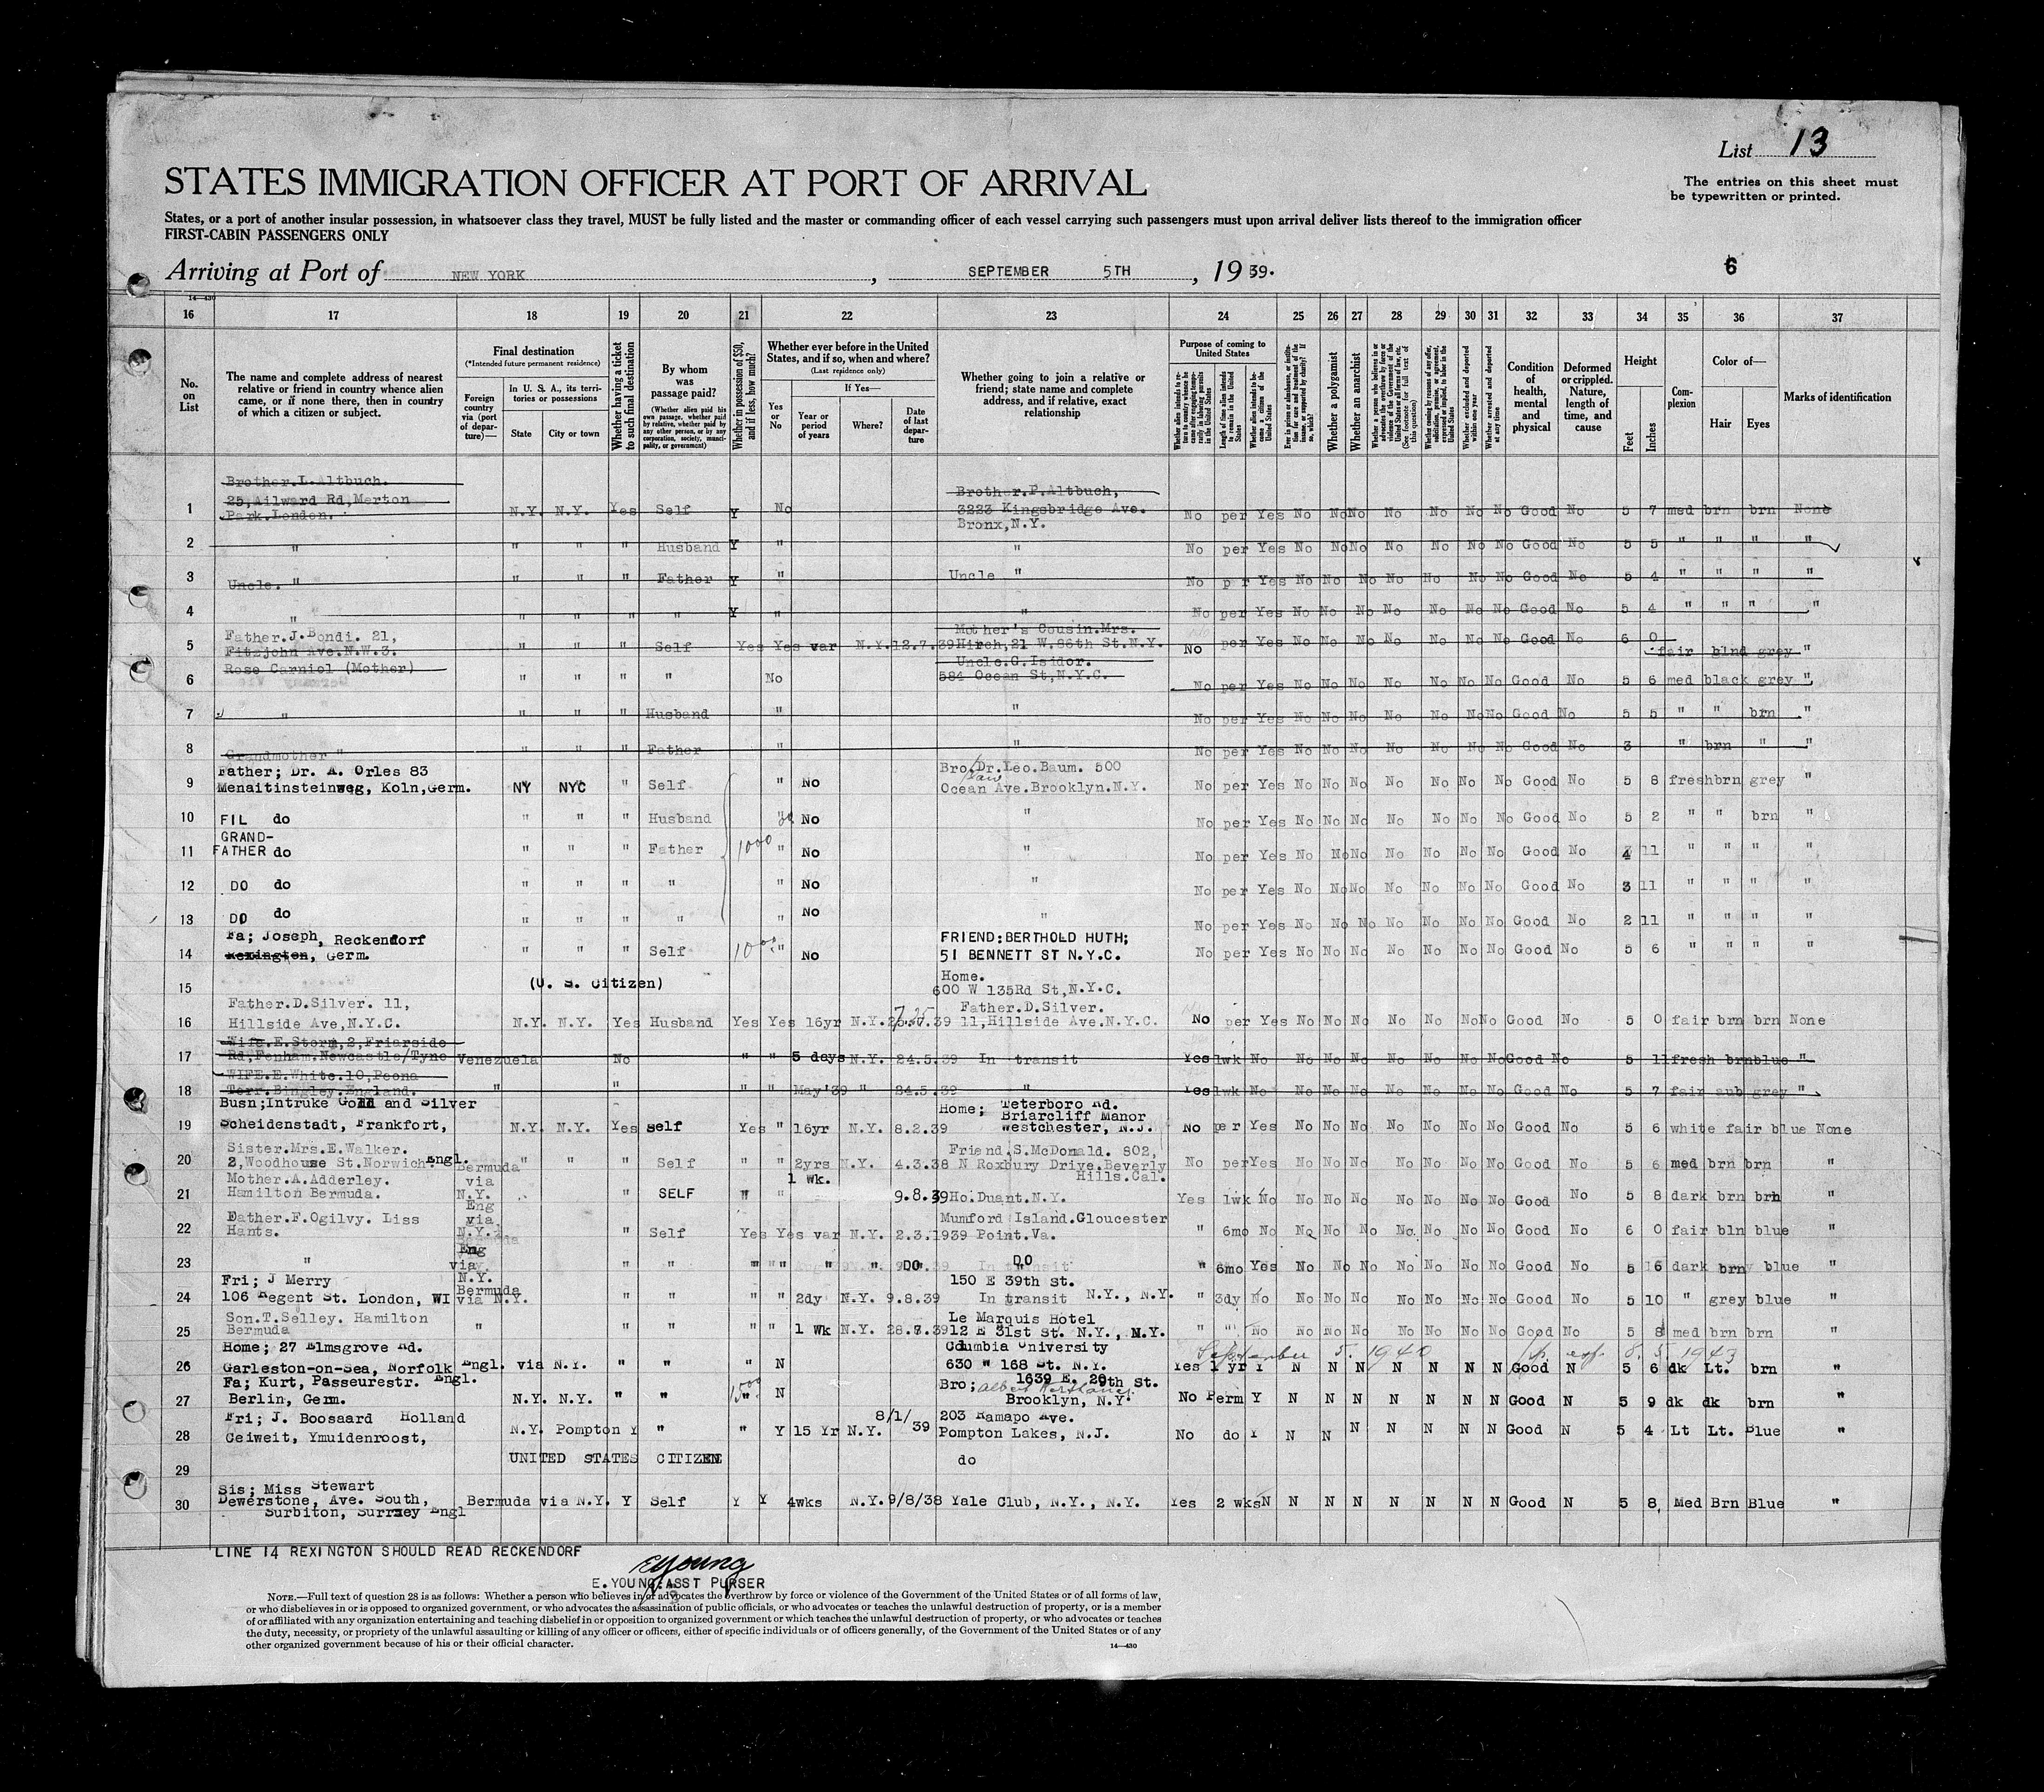 List 13
STATES IMMIGRATION OFFICER AT PORT OF ARRIVAL
The entries on this sheet must
be typewritten or printed.
States, or a port of another insular possession, in whatsoever class they travel, MUST be fully listed and the master or commanding officer of each vessel carrying such passengers must upon arrival deliver lists thereof to the immigration officer
FIRST-CABIN PASSENGERS ONLY
Arriving at Port of NEW YORK, SEPTEMBER 5TH, 1939.
6
14—430
16 17 18 19 20 21 22 23 24 25 26 27 28 29 30 31 32 33 34 35 36 37
No. on List
The name and complete address of nearest relative or friend in country whence alien came, or if none there, then in country of which a citizen or subject.
Final destination
(*Intended future permanent residence)
Foreign country via (port of departure)—
In U. S. A., its territories or possessions
State
City or town
Whether having a ticket to such final destination
By whom was passage paid?
(Whether alien paid his own passage, whether paid by relative, whether paid by any other person, or by any corporation, society, municipality, or government)
Whether in possession of $50, and if less, how much?
Whether ever before in the United States, and if so, when and where?
(Last residence only)
Yes or No
If Yes—
Year or period of years
Where?
Date of last departure
Whether going to join a relative or friend; state name and complete address, and if relative, exact relationship
Purpose of coming to United States
Whether alien intends to return to country whence he came after engaging temporarily in laboring pursuits in the United States
Length of time alien intends to remain in the United States
Whether alien intends to become a citizen of the United States
Ever in prison or almshouse, or institution for care and treatment of the insane, or supported by charity? If so, which?
Whether a polygamist
Whether an anarchist
Whether a person who believes in or advocates the overthrow by force or violence of the Government of the United States or all forms of law, etc. (See footnote for full text of this question)
Whether coming by reasons of any offer, solicitation, promise, or agreement, expressed or implied, to labor in the United States
Whether excluded and deported within one year
Whether arrested and deported at any time
Condition of health, mental and physical
Deformed or crippled. Nature, length of time, and cause
Height
Feet
Inches
Complexion
Color of—
Hair
Eyes
Marks of identification
Brother.L.Altbuch.
25,Ailward Rd,Merton
Park.London.
Brother.P.Altbuch,
3223 Kingsbridge Ave.
Bronx,N.Y.
1 N.Y. N.Y. Yes Self Y No No per Yes No No No No No No No Good No 5 7 med brn brn None
2 " " " " Husband Y " " No per Yes No No No No No No No Good No 5 5 " " " "
3 Uncle. " " " " Father Y " Uncle " No p r Yes No No No No No No No Good No 5 4 " " " "
4 " " " " " Y " " No per Yes No No No No No No No Good No 5 4 " " " "
5 Father.J.Bondi. 21,
Fitzjohn Ave.N.W.3. " " " Self Yes Yes var N.Y. 12.7.39 Mother's Cousin.Mrs.
Hirch,21 W.86th St.N.Y. No per Yes No No No No No No No Good No 6 0 fair blnd grey "
6 Rose Carniol (Mother) " " " " No Uncle.G.Isidor.
584 Ocean St,N.Y.C. No per Yes No No No No No No No Good No 5 6 med black grey "
7 " " " " Husband " " No per Yes No No No No No No No Good No 5 5 " " brn "
8 Grandmother " " " " Father " " No per Yes No No No No No No No Good No 3 " brn " "
9 Father; Dr. A. Orles 83
Menaitinsteinweg, Koln,Germ. NY NYC " Self " No Bro Dr.Leo.Baum. 500
Ocean Ave.Brooklyn.N.Y. No per Yes No No No No No No No Good No 5 8 fresh brn grey "
10 FIL do " " " Husband " No " No per Yes No No No No No No No Good No 5 2 " " brn "
11 GRAND-
FATHER do " " " Father 1000 " No " No per Yes No No No No No No No Good No 4 11 " " " "
12 DO do " " " " " No " No per Yes No No No No No No No Good No 3 11 " " " "
13 DO do " " " " " No " No per Yes No No No No No No No Good No 2 11 " " " "
14 Fa; Joseph, Reckendorf
Rexington, Germ. " " " Self 1000 " No FRIEND:BERTHOLD HUTH;
51 BENNETT ST N.Y.C. No per Yes No No No No No No No Good No 5 6 " " " "
15 (U. S. Citizen) Home.
600 W 135Rd St,N.Y.C.
16 Father.D.Silver. 11,
Hillside Ave,N.Y.C. N.Y. N.Y. Yes Husband Yes Yes 16yr N.Y. Father.D.Silver.
11,Hillside Ave.N.Y.C. No per Yes No No No No No No No Good No 5 0 fair brn brn None
17 Wife.E.Storm,2,Friarside
Rd,Fenham.Newcastle/Tyne Venezuela No " " 5 days N.Y. 24.5.39 In transit Yes 1wk No No No No No No No No Good No 5 11 fresh brn blue "
18 WIFE.E.White.10,Poona
Terr.Bingley.England. " " " " May'39 " 24.5.39 " Yes 1wk No No No No No No No No Good No 5 7 fair aub grey "
19 Busn;Intruke Gold and Silver
Scheidenstadt, Frankfort, N.Y. N.Y. Yes self Yes " 16yr N.Y. 8.2.39 Home; Teterboro Rd.
Briarcliff Manor
Westchester, N.J. No per Yes No No No No No No No Good No 5 6 white fair blue None
20 Sister.Mrs.E.Walker.
2,Woodhouse St.Norwich. Engl. " " " Self " " 2yrs N.Y. 4.3.38 Friend.S.McDonald. 802,
N Roxbury Drive.Beverly
Hills.Cal. No per Yes No No No No No No No Good No 5 6 med brn brn "
21 Mother.A.Adderley.
Hamilton Bermuda. Bermuda via N.Y. " SELF " " 1 Wk. 9.8.39 Ho.Duant.N.Y. Yes 1wk No No No No No No No No Good No 5 8 dark brn brn "
22 Father.F.Ogilvy. Liss
Hants. Eng via N.Y. " Self Yes Yes var N.Y. 2.3.1939 Mumford Island.Gloucester
Point.Va. " 6mo No No No No No No No No Good No 6 0 fair bln blue "
23 " Eng via N.Y. " " " " " " DO DO " 6mo Yes No No No No No No No Good No 5 6 dark brn blue "
24 Fri; J Merry
106 Regent St. London, WI Bermuda via N.Y. " " " " 2dy N.Y. 9.8.39 150 E 39th st.
In transit N.Y., N.Y. " 3dy No No No No No No No No Good No 5 10 " grey blue "
25 Son.T.Selley. Hamilton
Bermuda " " " " " 1 Wk N.Y. 28.8.39 Le Marquis Hotel
12 E 31st St. N.Y., N.Y. " " No No No No No No No No Good No 5 8 med brn brn "
26 Home; 27 Elmsgrove Rd.
Garleston-on-Sea, Norfolk Engl. via N.Y. " " " N Columbia University
630 W 168 St. N.Y. September 5. 1940
Yes 1 yr Y N N N N N N N Good N 5 6 dk Lt. brn "
27 Fa; Kurt, Passeurestr. Engl.
Berlin, Germ. N.Y. N.Y. " " " N Bro; 1639 E. 29th St.
Brooklyn, N.Y. No Perm Y N N N N N N N Good N 5 9 dk dk brn "
28 Fri; J. Boosaard Holland
Geiweit, Ymuidenroost, N.Y. Pompton Y " " Y 15 Yr N.Y. 8/1/39 203 Ramapo Ave.
Pompton Lakes, N.J. No do Y N N N N N N N Good N 5 4 Lt Lt. Blue "
29 UNITED STATES CITIZEN do
30 Sis; Miss Stewart
Dewerstone, Ave. South,
Surbiton, Surrey Engl Bermuda via N.Y. Y Self Y Y 4wks N.Y. 9/8/38 Yale Club, N.Y., N.Y. Yes 2 wks N N N N N N N N Good N 5 8 Med Brn Blue "
LINE 14 REXINGTON SHOULD READ RECKENDORF
EYoung
E.YOUNG.ASST PURSER
NOTE.—Full text of question 28 is as follows: Whether a person who believes in or advocates the overthrow by force or violence of the Government of the United States or of all forms of law,
or who disbelieves in or is opposed to organized government, or who advocates the assassination of public officials, or who advocates or teaches the unlawful destruction of property, or is a member
of or affiliated with any organization entertaining and teaching disbelief in or opposition to organized government or which teaches the unlawful destruction of property, or who advocates or teaches
the duty, necessity, or propriety of the unlawful assaulting or killing of any officer or officers, either of specific individuals or of officers generally, of the Government of the United States or of any
other organized government because of his or their official character.
14—430